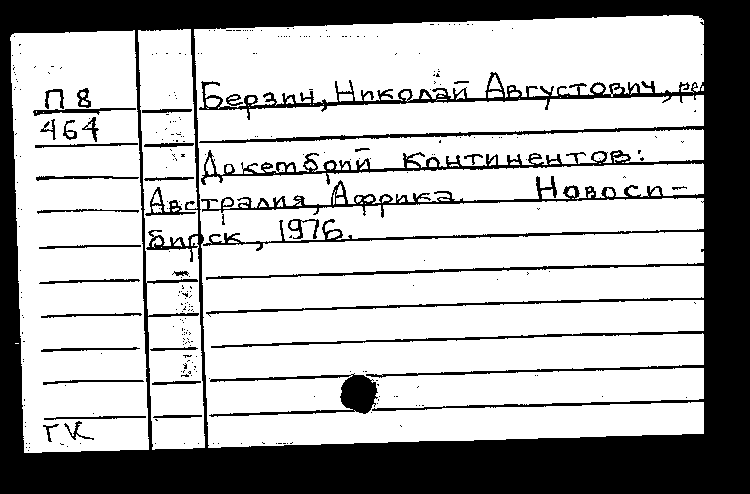 П 8
464
Берзин, Николай Августович, ред
Докембрий континентов:
Австралия, Африка. Новоси-
бирск, 1976.
ГК